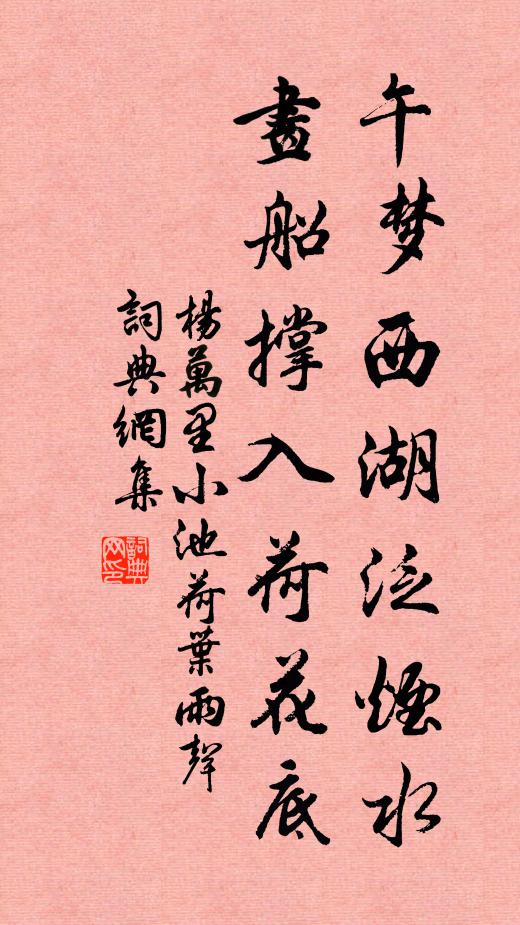 午梦西湖泛煙水
畫船撐入荷花底
楊萬里小池荷葉雨聲
詞典網集
詞典网印